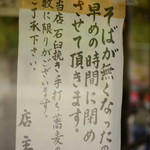 そばが無くなったの
早めの時間に閉め
させて頂きます。
当店石臼挽き・手打ち蕎麦の
数に限りがございます。
ご了承下さい。
店主